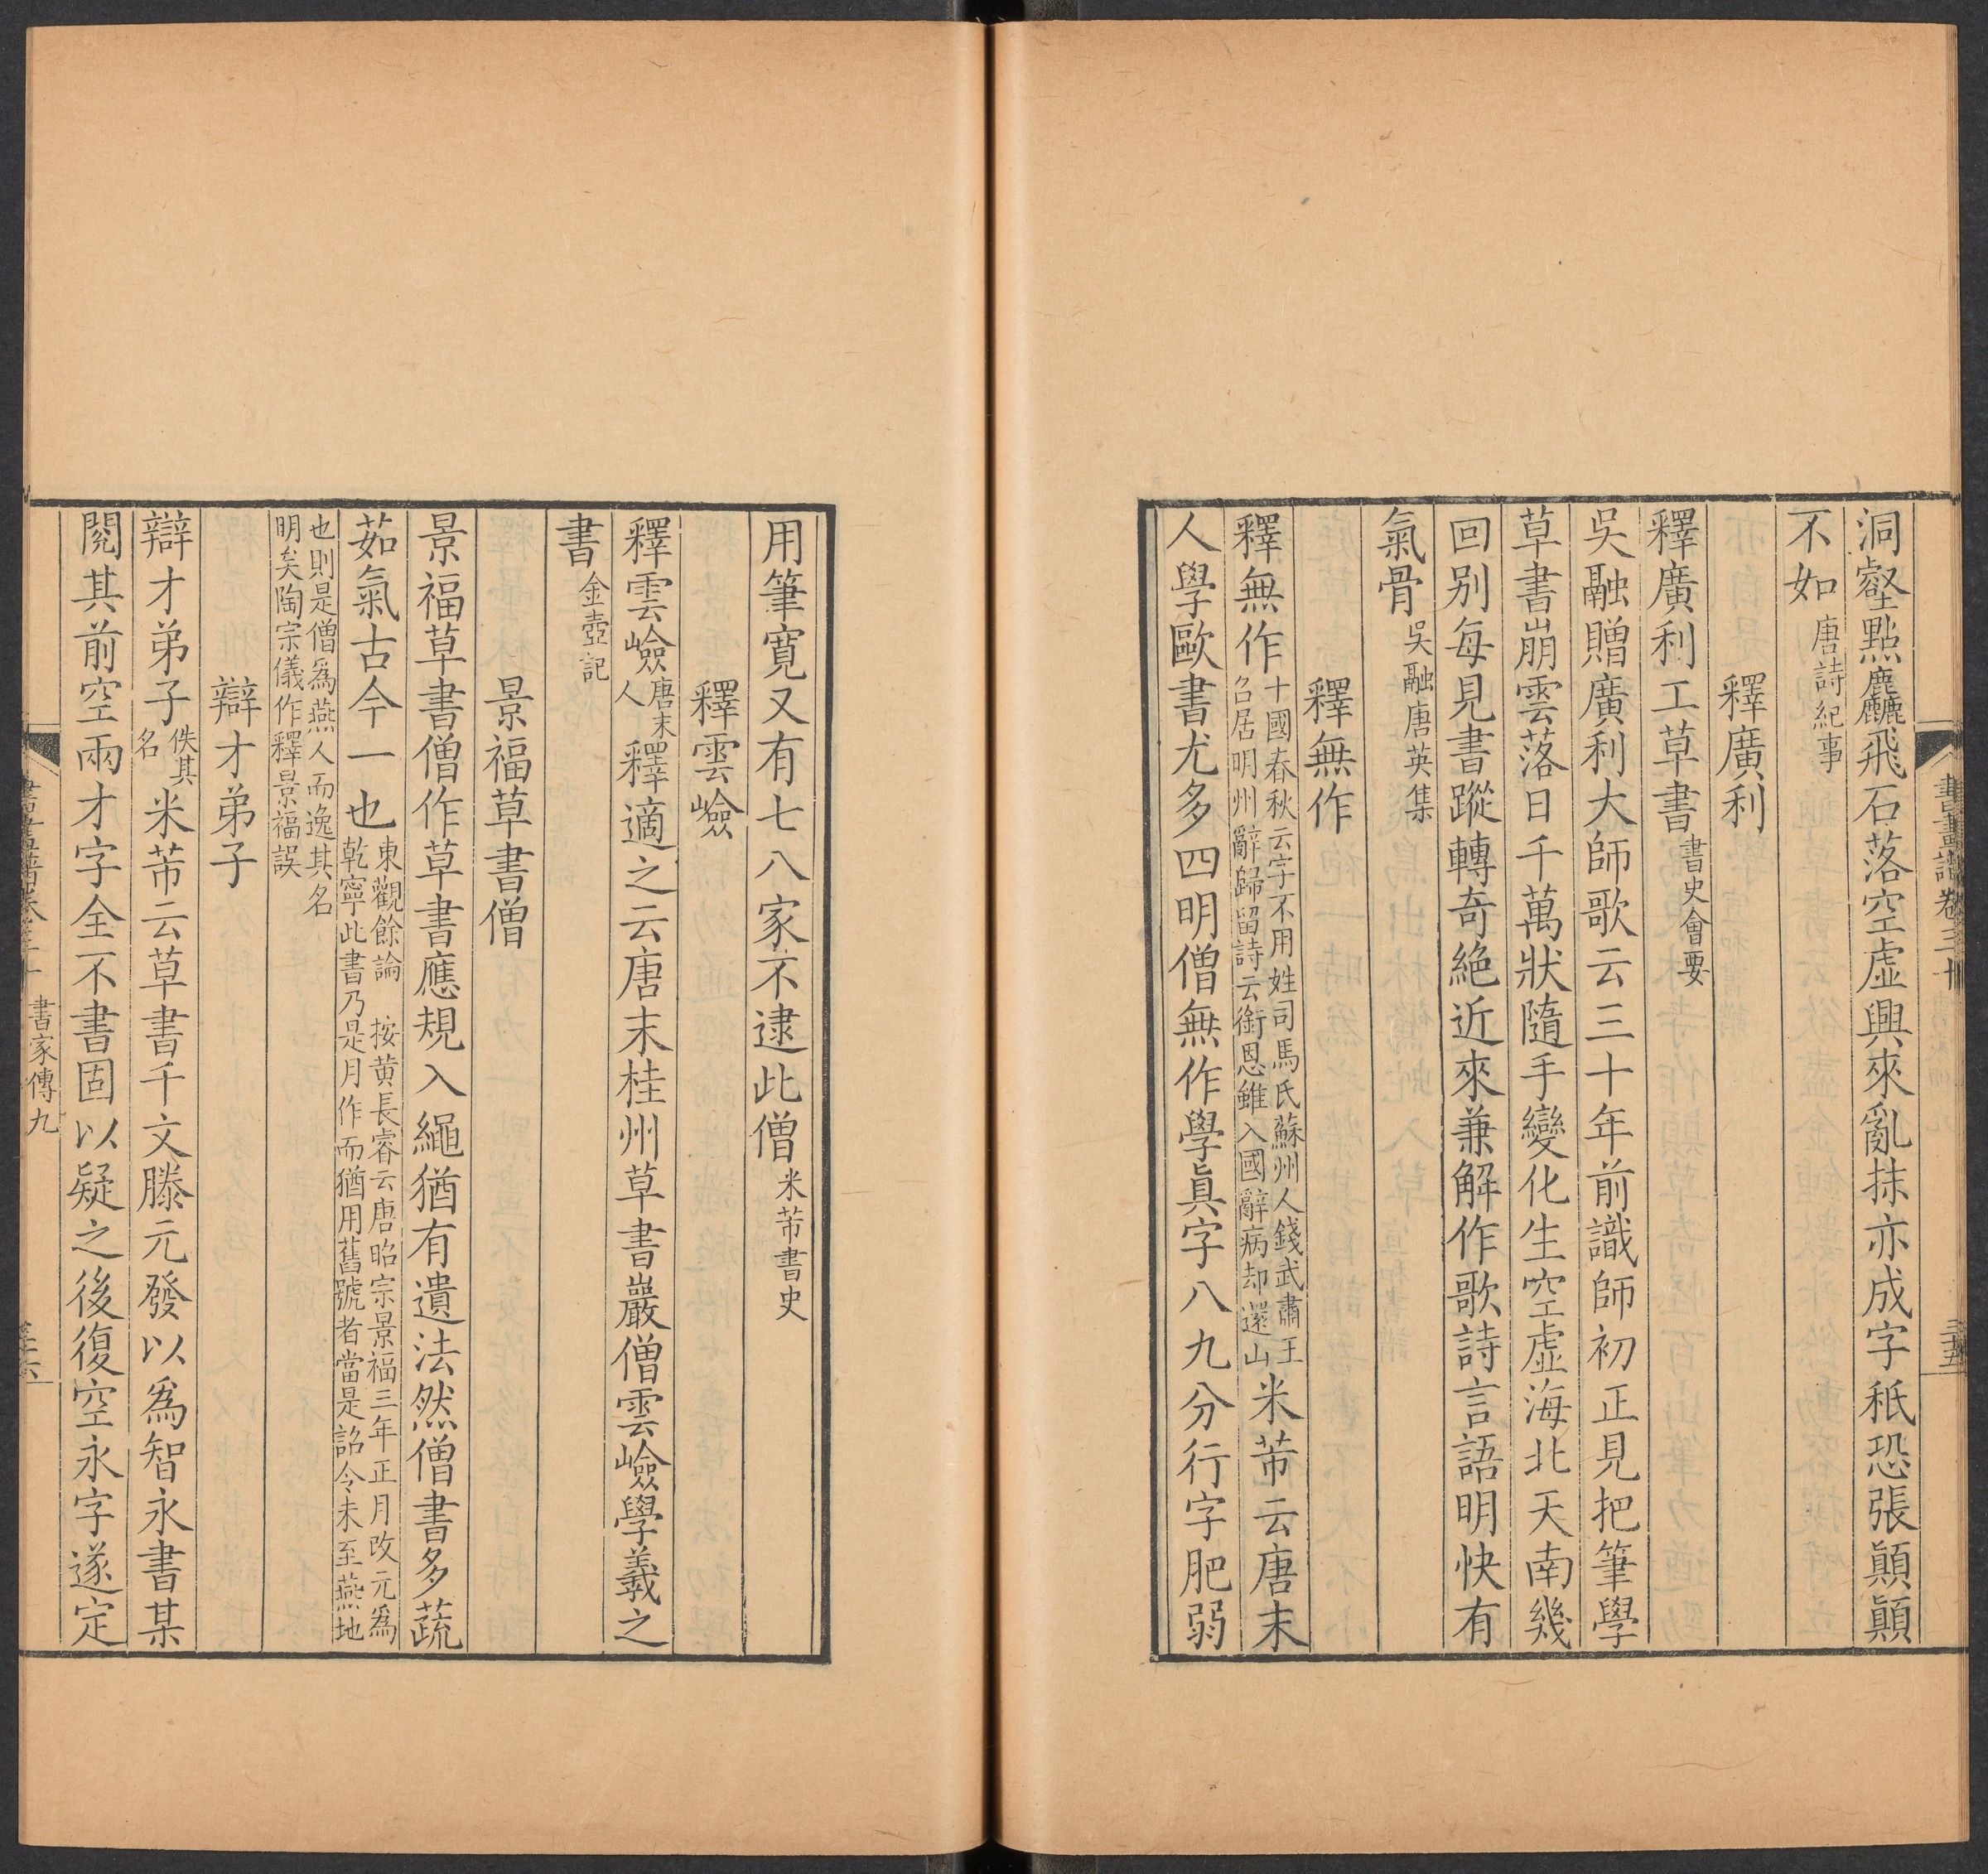 洞壑點麤飛石落空虛興來亂抹亦成字秖恐張顛顛
不如唐詩紀事
釋廣利
釋廣利工草書書史會要
吳融贈廣利大師歌云三十年前識師初正見把筆學
草書崩雲落日千萬狀隨手變化生空虛海北天南幾
回別每見書蹤轉奇絕近來兼解作歌詩言語明快有
氣骨吳融唐英集
釋無作
釋無作十國春秋云字不用姓司馬氏蘇州人錢武肅王
召居明州辭歸留詩云銜恩雖入國辭病却還山米芾云唐末
人學歐書尤多四明僧無作學眞字八九分行字肥弱
用筆寬又有七八家不逮此僧米芾書史
釋雲嶮
釋雲嶮唐末人釋適之云唐末桂州草書巖僧雲嶮學羲之
書金壺記
景福草書僧
景福草書僧作草書應規入繩猶有遺法然僧書多蔬
茹氣古今一也東觀餘論 按黃長睿云唐昭宗景福三年正月改元爲
乾寧此書乃是月作而猶用舊號者當是詔令未至燕地
也則是僧爲燕人而逸其名
明矣陶宗儀作釋景福誤
辯才弟子
辯才弟子佚其名米芾云草書千文滕元發以爲智永書某
閱其前空兩才字全不書固以疑之後復空永字遂定
書家傳九